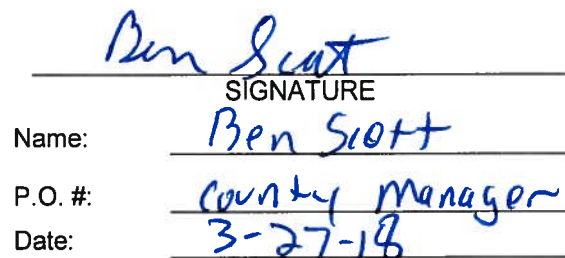 Ben Scott
SIGNATURE
Name: Ben Scott
P.O. #: County Manager
Date: 3-27-18